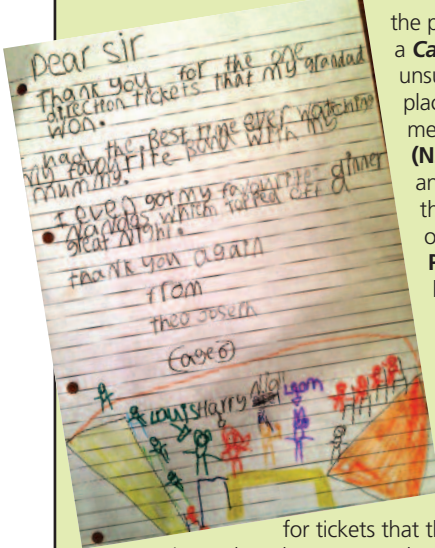 Dear sir
Thank you for the one
direction tickets that my grandad
won.
I had the best time ever watching
my favourite band with my
mummy.
I even got my favourite dinner
Nandos which topped off
great night.
thank you again
from
theo Joseph
(age 6)
Louis Harry Niall Liam
the p
a Ca
unsu
plac
me
(N
an
th
o
F
for tickets that th